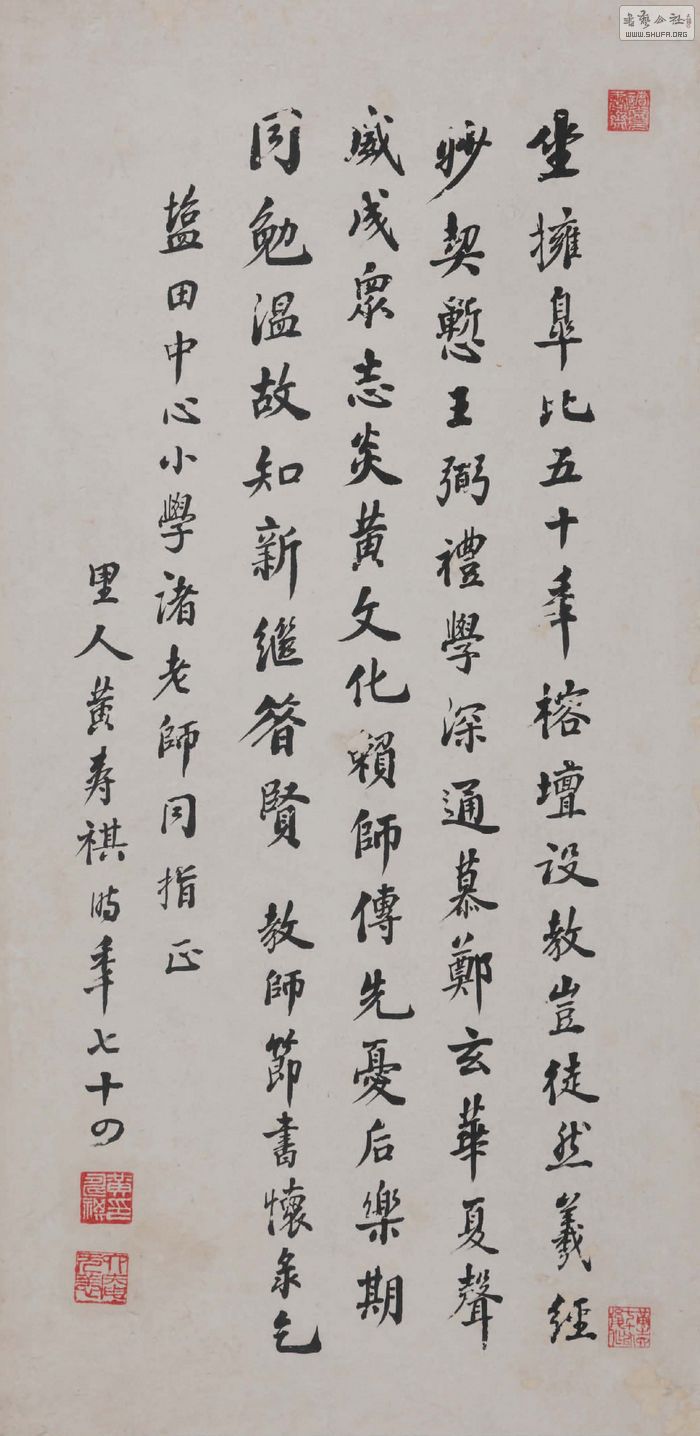 坐擁皐比五十年榕壇設教豈徒然羲經
妙契慙王弼禮學深通慕鄭玄華夏聲
威成衆志炎黃文化賴師傳先憂后樂期
同勉溫故知新繼昝賢 教師節書懷录乞
塩田中心小學诸老師同指正
里人黃寿祺时年七十四
WWW.SHUFA.ORG